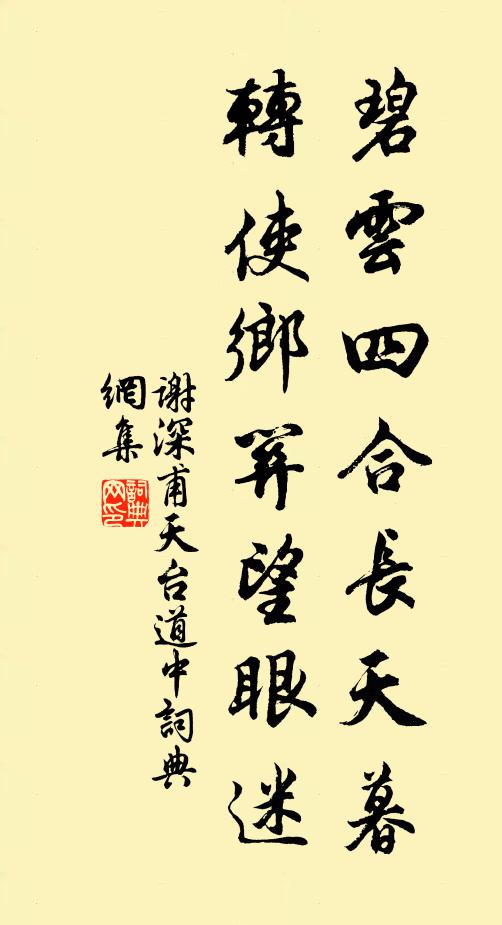 碧雲四合長天暮
轉使鄉關望眼迷
謝深甫天台道中詞典
網集
詞典
网印